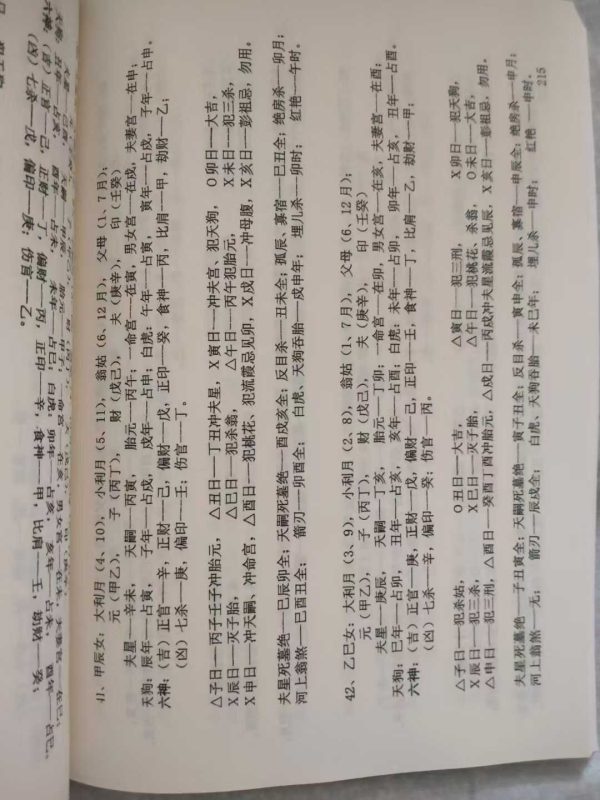 41、甲辰女：大利月（4、10），小利月（5、11），翁姑（6、12月），父母（1、7月）；
元（甲乙），子（丙丁），财（戊己），夫（庚辛），印（壬癸）
夫星—辛未，天嗣—丙寅，胎元—丙午；命宫—在寅，男女宫—在戌，夫妻宫—在申；
天狗：辰年—占寅，子年—占戌，戌年—占申；白虎：午年—占寅，寅年—占戌，子年—占申。
六神：（吉）正官—辛，正财—己，偏财—戊，正印—癸，食神—丙，比肩—甲，劫财—乙；
（凶）七杀—庚，偏印—壬；伤官—丁。
△子日—丙子壬子冲胎元，△丑日—丁丑冲夫星，X寅日—冲夫宫、犯天狗，O卯日—大吉，
X辰日—灭子胎，△巳日—犯杀翁，△午日—丙午犯胎元，X未日—犯三杀，
X申日—冲天嗣、冲命宫，△酉日—犯桃花、犯流霞忌见卯，X戌日—冲母腹，X亥日—彭祖忌，勿用。
夫星死墓绝—巳辰卯全；天嗣死墓绝—酉戌亥全；反目杀—丑未全；孤辰、寡宿—巳丑全；绝房杀—卯月；
河上翁煞—巳酉全；箭刃—卯酉全；白虎、天狗吞胎—戌申年；埋儿杀—卯时；红艳—午时。
42、乙巳女：大利月（3、9），小利月（2、8），翁姑（1、7月），父母（6、12月）；
元（甲乙），子（丙丁），财（戊己），夫（庚辛），印（壬癸）
夫星—庚辰，天嗣—丁亥，胎元—丁卯；命宫—在卯，男女宫—在亥，夫妻宫—在酉；
天狗：巳年—占卯，丑年—占亥，亥年—占酉；白虎：未年—占卯，卯年—占亥，丑年—占酉。
六神：（吉）正官—庚，正财—戊，偏财—己，正印—壬，食神—丁，比肩—乙，劫财—甲；
（凶）七杀—辛，偏印—癸；伤官—丙。
△子日—犯杀姑，O丑日—大吉，△寅日—犯三刑，X卯日—犯天狗，
X辰日—犯三杀，X巳日—灭子胎，△午日—犯桃花、杀翁，O未日—大吉，
△申日—犯三刑，△酉日—癸酉丁酉冲胎元，△戌日—丙戌冲夫星流霞忌见辰，X亥日—彭祖忌，勿用。
夫星死墓绝—子丑寅全；天嗣死墓绝—寅子丑全；反目杀—寅申全；孤辰、寡宿—申辰全；绝房杀—申月；
河上翁煞—无；箭刃—辰戌全；白虎、天狗吞胎—未巳年；埋儿杀—申时；红艳—申时。
215